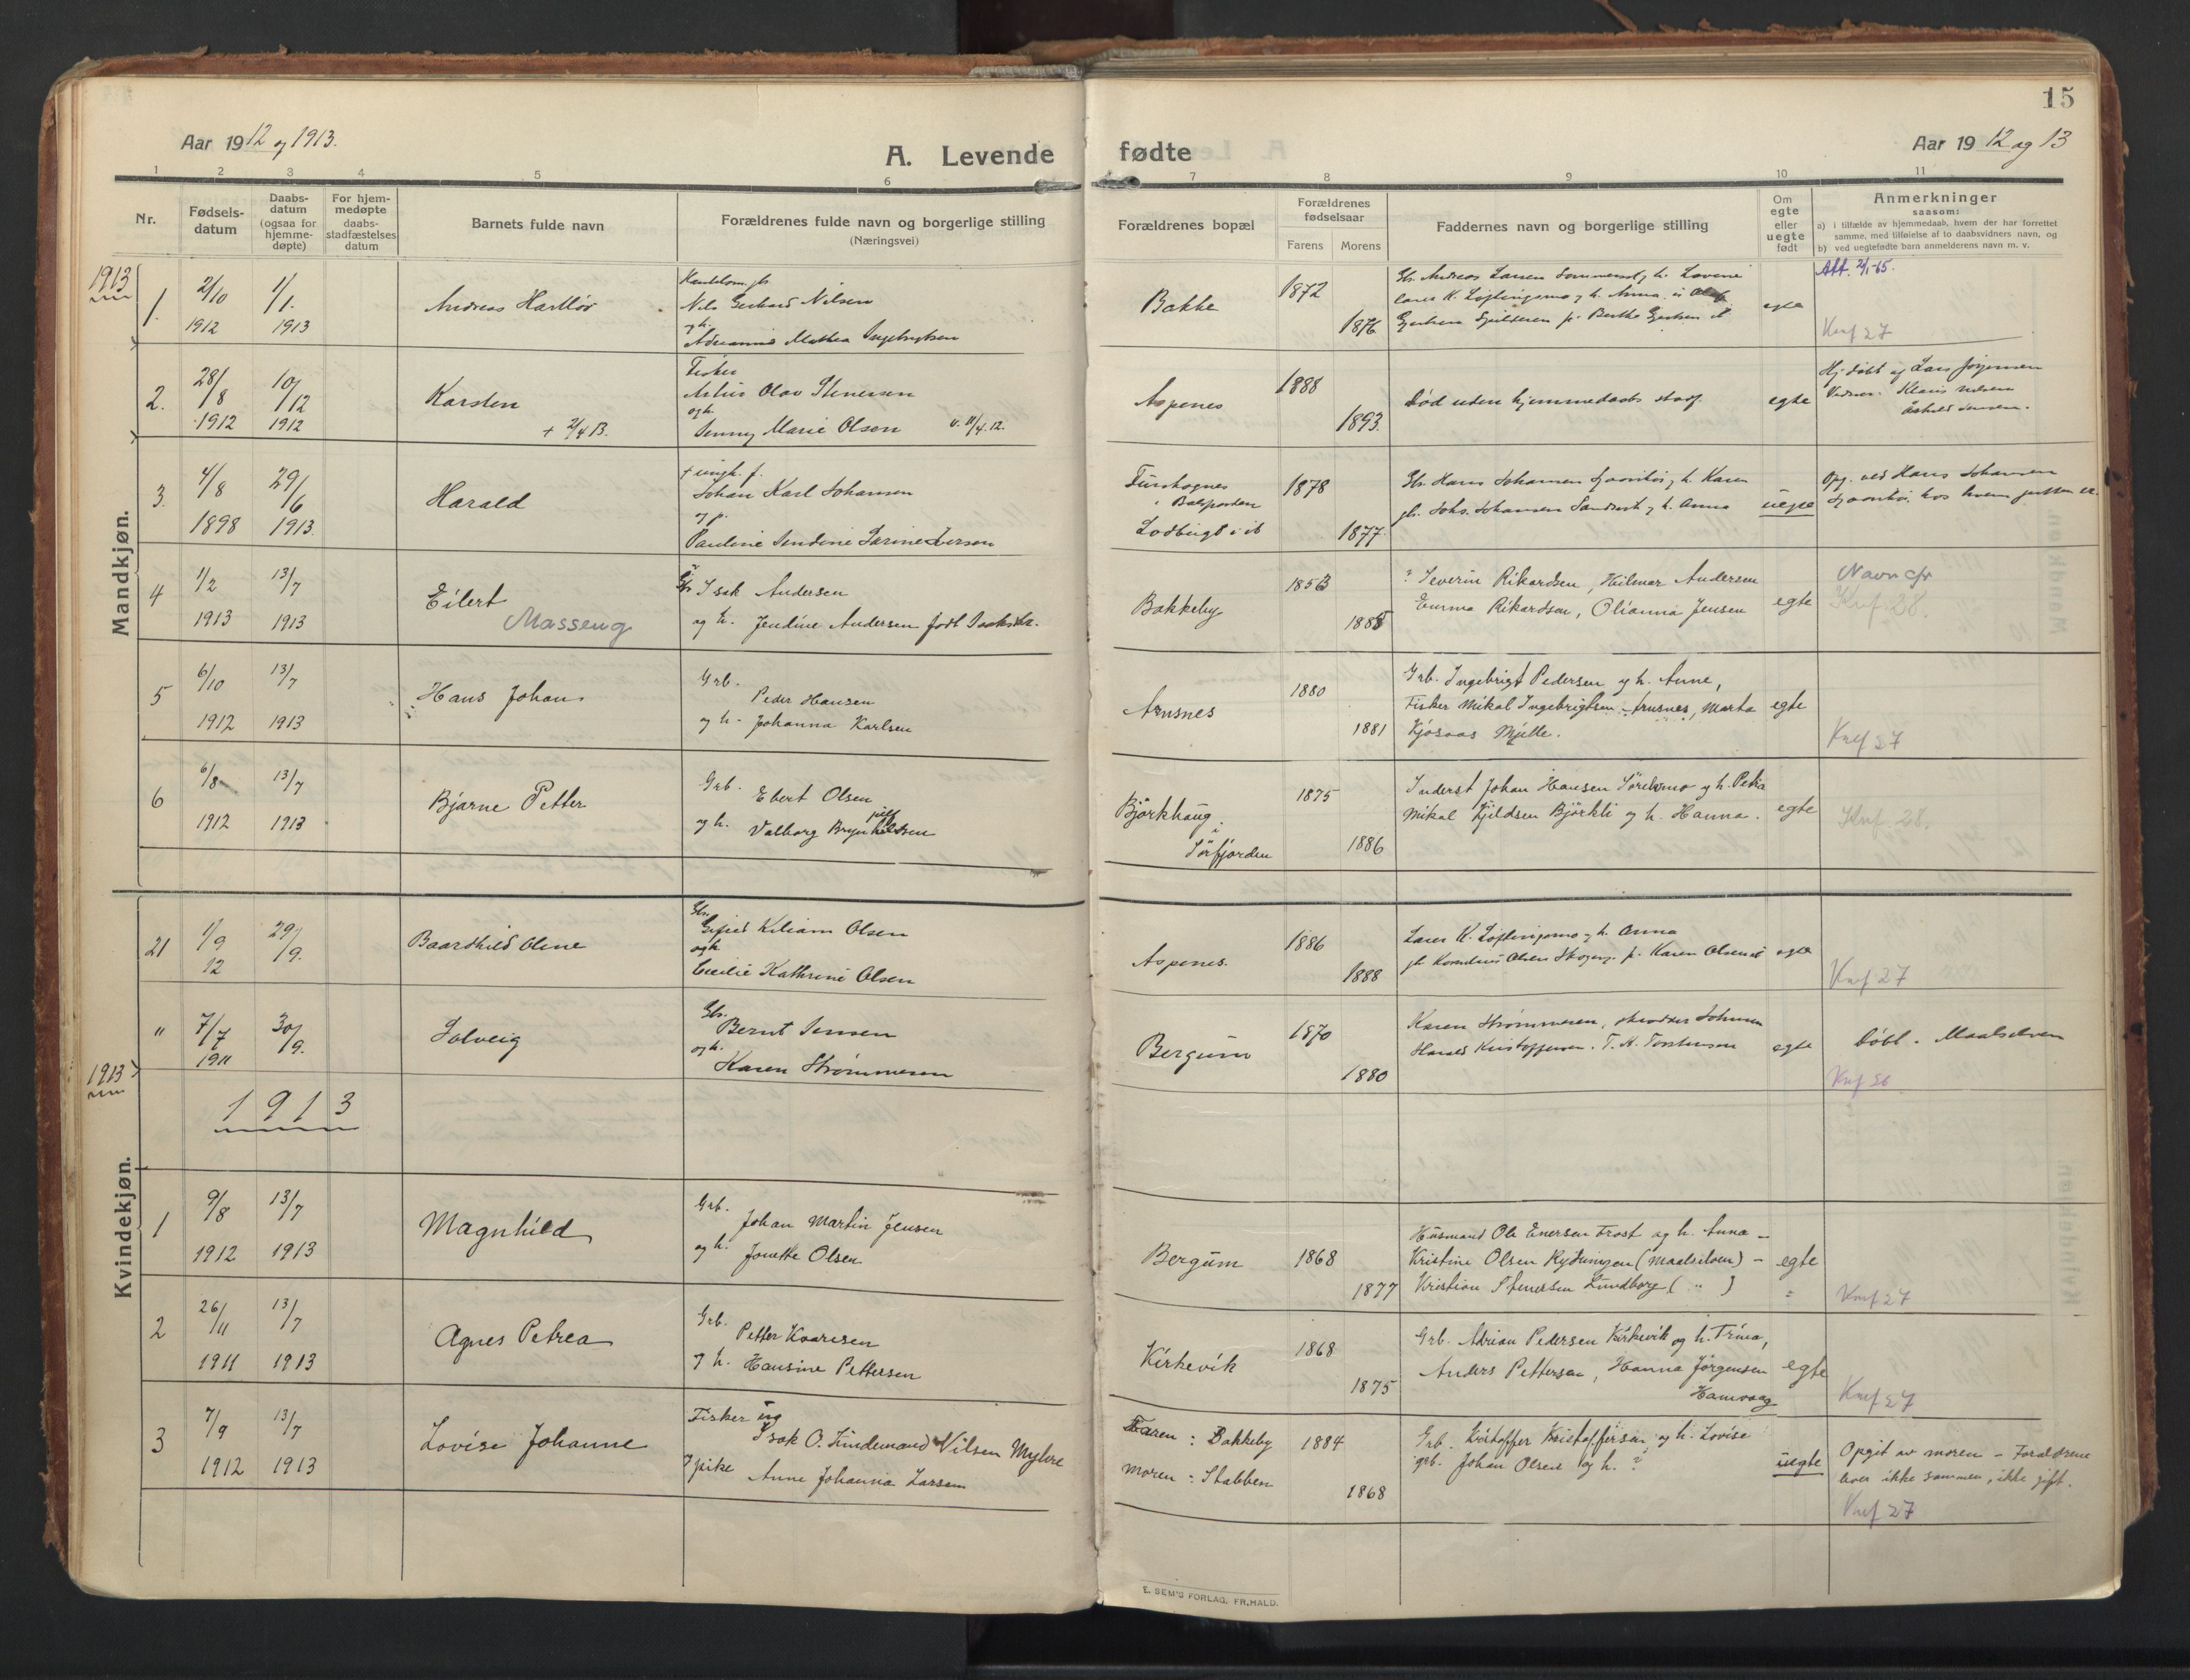 15
Aar 1912 og 1913.
A. Levende fødte
Aar 1912 og 13
1 2 3 4 5 6 7 8 9 10 11
Nr.
Fødsels-
datum
Daabs-
datum
(ogsaa for
hjemme-
døpte)
For hjem-
medøpte
daabs-
stadfæstelses
datum
Barnets fulde navn
Forældrenes fulde navn og borgerlige stilling
(Næringsvei)
Forældrenes bopæl
Forældrenes
fødselsaar
Farens Morens
Faddernes navn og borgerlige stilling
Om
egte
eller
uegte
født
Anmerkninger
saasom:
a) i tilfælde av hjemmedaab, hvem der har forrettet
samme, med tilføielse af to daabsvidners navn, og
b) ved uegtefødte barn anmelderens navn m. v.
Mandkjøn.
1913
1.
2/10
1912
1/1.
1913
Andreas
Nils Gerhard Nilsen
og h.
Mathea
Bakke
1872
1876
egte
Att. 2/1-65.
Knf 27
2.
28/8
1912
10/12
1912
Karsten
+ 2/4 13.
Fisker
Olav Stenersen
og h.
Jenny Marie Olsen v. 11/4.12.
Aspenes
1888
1893.
Død uden hjemmedaabs stadf.
egte
Hj. døbt af Lars Jørgensen
3.
4/8
1898
29/6
1913.
Harald
+ ungk. f.
Johan Karl Johansen
og p.
Pauline Jendine Iversen
1878
1877
Hans Johansen h. Karen
Johs. Johansen h. Anna
uegte
Opg. ved Hans Johansen
4
1/2
1913
13/7
1913
Eilert
Masseng
Isak Andersen
og h. Jendine Andersen født
Bakkeby
1853
1885
? Severin Rikardsen, Hilmar Andersen
Emma Rikardsen, Olianna Jensen
egte
Navn cfr
Knf 28.
5
6/10
1912
13/7
1913
Hans Johan
Grb.
Peder Hansen
og h. Johanna Karlsen
Arnsnes
1880
1881
Grb. Ingebrigt Pedersen og h. Anne,
Fisker Mikal Ingebrigtsen Arnsnes, Marta
Kjosvas Mjelle.
egte
Knf 27
6
6/8
1912
13/7
1913
Bjarne Petter
Grb. Ebert Olsen
og h. Valborg Brynhildsen
Björkhaug
i
Sörfjorden
1875
1886
Inderst Johan Hansen Sörelvmo og h. Petra
Mikal Kjeldsen Björkli og h. Hanna.
egte
Knf 28.
Kvindekjøn.
21
1/9
12
29/9.
Baardhild Oline
Kiliam Olsen
og h.
Cecilie Kathrine Olsen
Aspenes.
1886
1888
h. Anna
Karen Olsen
egte
Knf 27
"
7/7
1911
30/9.
Solveig
Bernt Jensen
og h.
Karen Strømmesen
Bergum
1870
1880
Karen Strømmesen,
Harald Kristoffersen.
egte
Döbt. Maalselven
Knf 26
1913
1913
1
9/8
1912
13/7
1913
Magnhild
Grb.
Johan Martin Jensen
og h. Jonette Olsen
Bergum
1868
1877
Husmand Ole Enersen Trost og h. Anna -
Kristine Olsen Rydningen (Maalselven) -
Kristian Stenersen Lundborg ( " )
egte
Knf 27
2
26/11
1911
13/7
1913
Agnes Petrea
Grb.
Petter Kaaresen
og h. Hansine Pettersen
Kirkevik
1868
1875
Grb. Adrian Pedersen Kirkevik og h. Trina,
Anders Pettersen, Hanna Jörgensen
Hamvaag
egte
Knf 27
3
7/9
1912
13/7
1913
Lovise Johanne
Fisker ug
Isak O. Kindemand Nilsen Myhre
og pike Anne Johanna Larsen
Faren: Bakkeby
Moren: Stabben
1884
1868
Grb. Kristoffer Kristoffersen og h. Lovise
grb. Johan Olsen og h. ?
uegte
Opgit av moren - Forældrene
lever ikke sammen, ikke gift.
Knf 27
E. SEM'S FORLAG, FR.HALD.